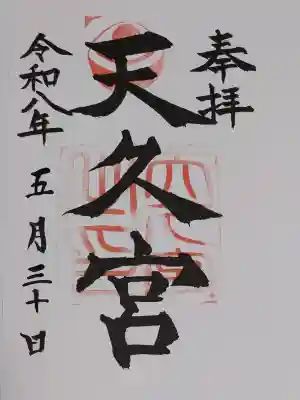 奉拝
天久宮
令和八年 五月三十日